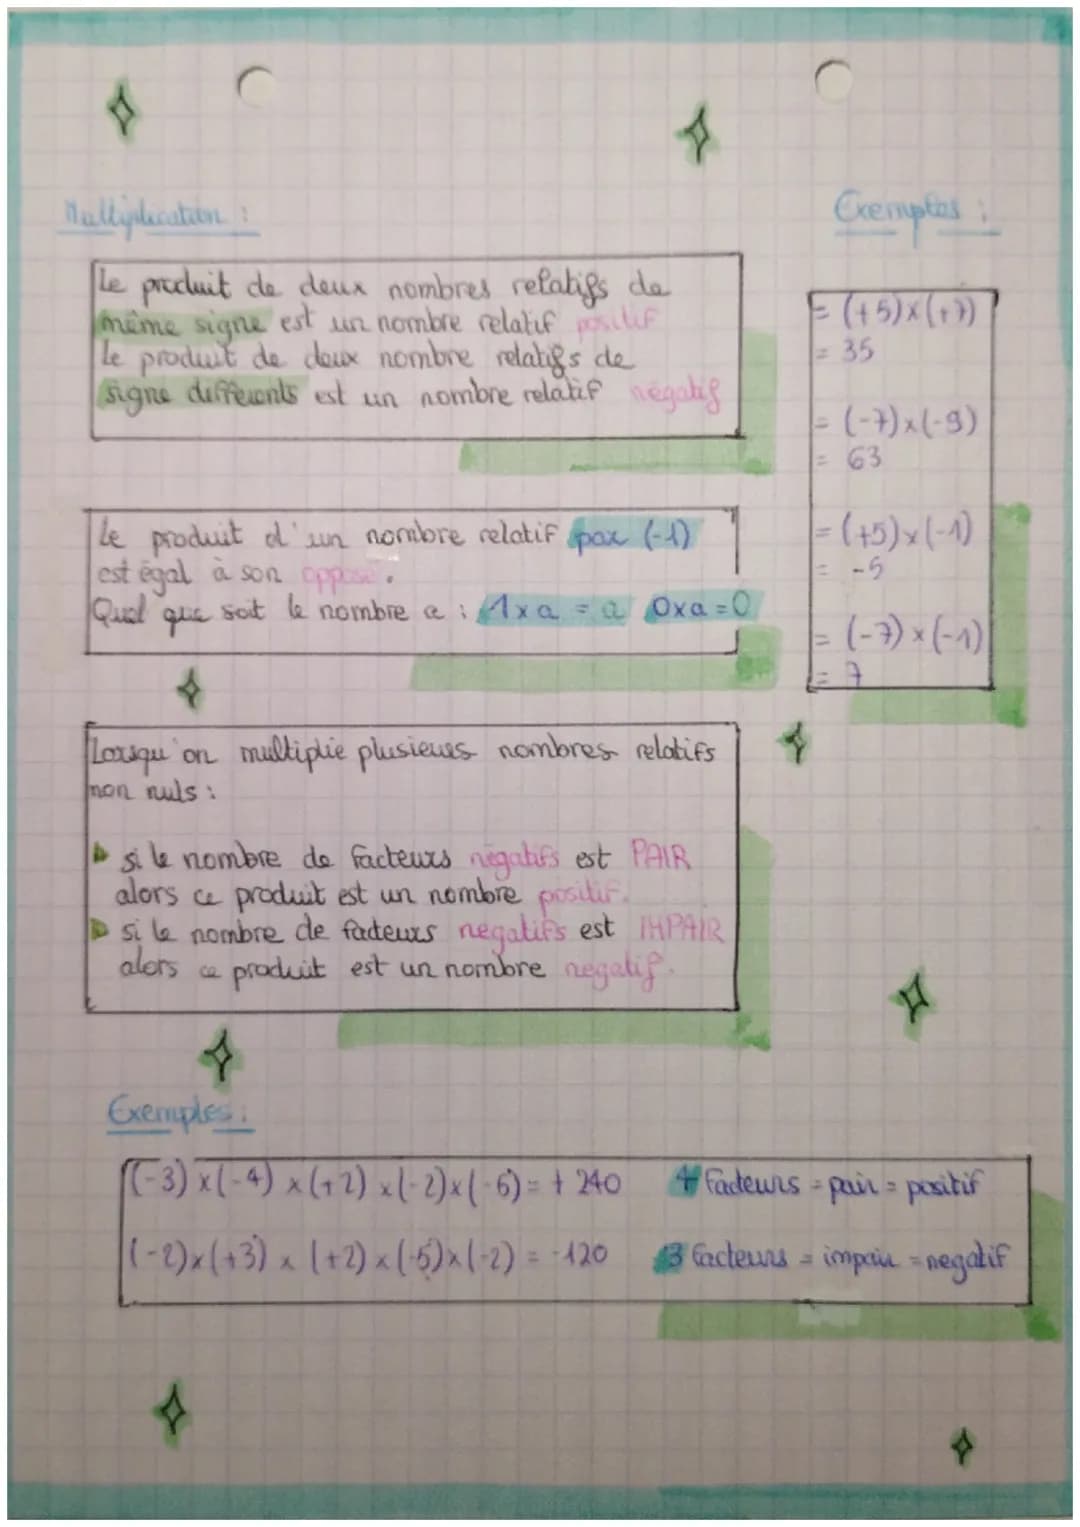 Multiplication :
Le produit de deux nombres relatifs de
même signe est un nombre relatif positif
Le produit de deux nombre relatifs de
signe différents est un nombre relatif négatif
Le produit d'un nombre relatif par (-1)
est égal à son opposé.
Quel que soit le nombre a : 1xa = a 0xa=0
Lorsqu'on multiplie plusieurs nombres relatifs
non nuls :
si le nombre de facteurs négatifs est PAIR
alors ce produit est un nombre positif.
si le nombre de facteurs negatifs est IMPAIR
alors ce produit est un nombre negatif.
Exemples :
= (+5)x(+7)
= 35
= (-7)x(-9)
= 63
= (+5)x(-1)
= -5
= (-7)x(-1)
= 7
Exemples :
(-3)x(-4)x(+2)x(-2)x(-6)= + 240 4 facteurs = pair = positif
(-2)x(+3)x(+2)x(-5)x(-2) = -120 3 facteurs = impair = negatif